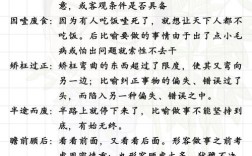 意，或客观条件是否具备
因噎废食：因为有人吃饭噎死了，就想让天下人都不
吃饭。后比喻要做的事情由于出了点小毛
病或怕出问题就索性不去干
矫枉过正：把弯曲的东西超过了限度，使其又弯向
另一边；比喻纠正事物的偏失、错误过了
头，而陷入另一种偏失、错误之中
半途而废：半路上就停下来了，比喻做事不能坚持到
底，有始无终。
瞻前顾后：看看前面，又看看后面。形容做事之前考